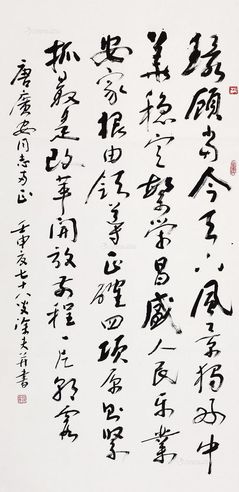 环顾当今天下风景独好中
华稳定繁荣昌盛人民乐业
安家根由领导正确四项原则紧
抓最是改革开放前程一片朝霞
唐广安同志寿正
壬申亥七十八叟涂夫并书